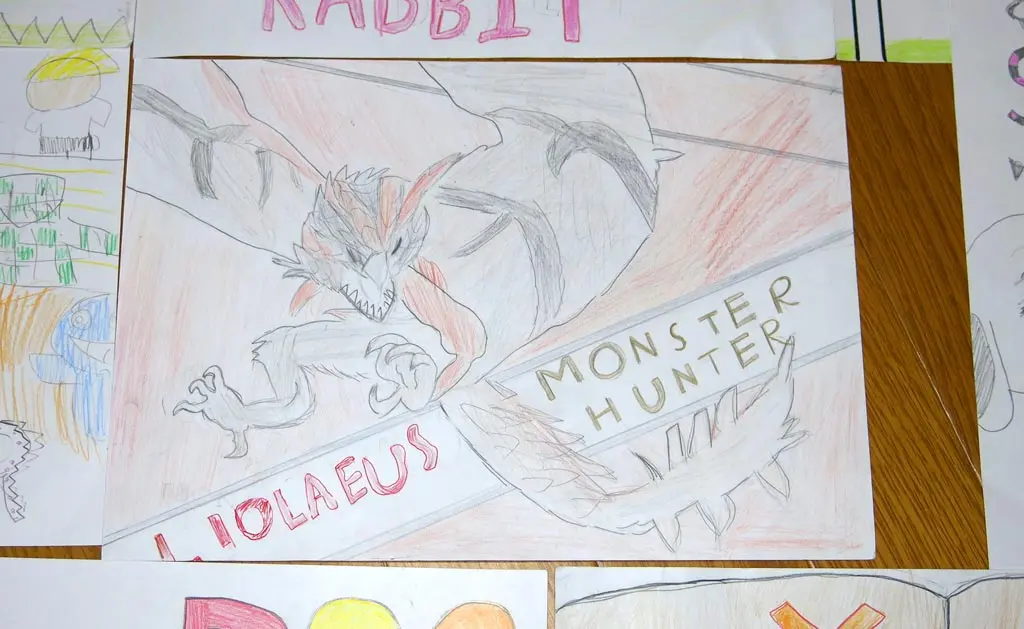 RABBIT
MONSTER
HUNTER
LIOLAEUS